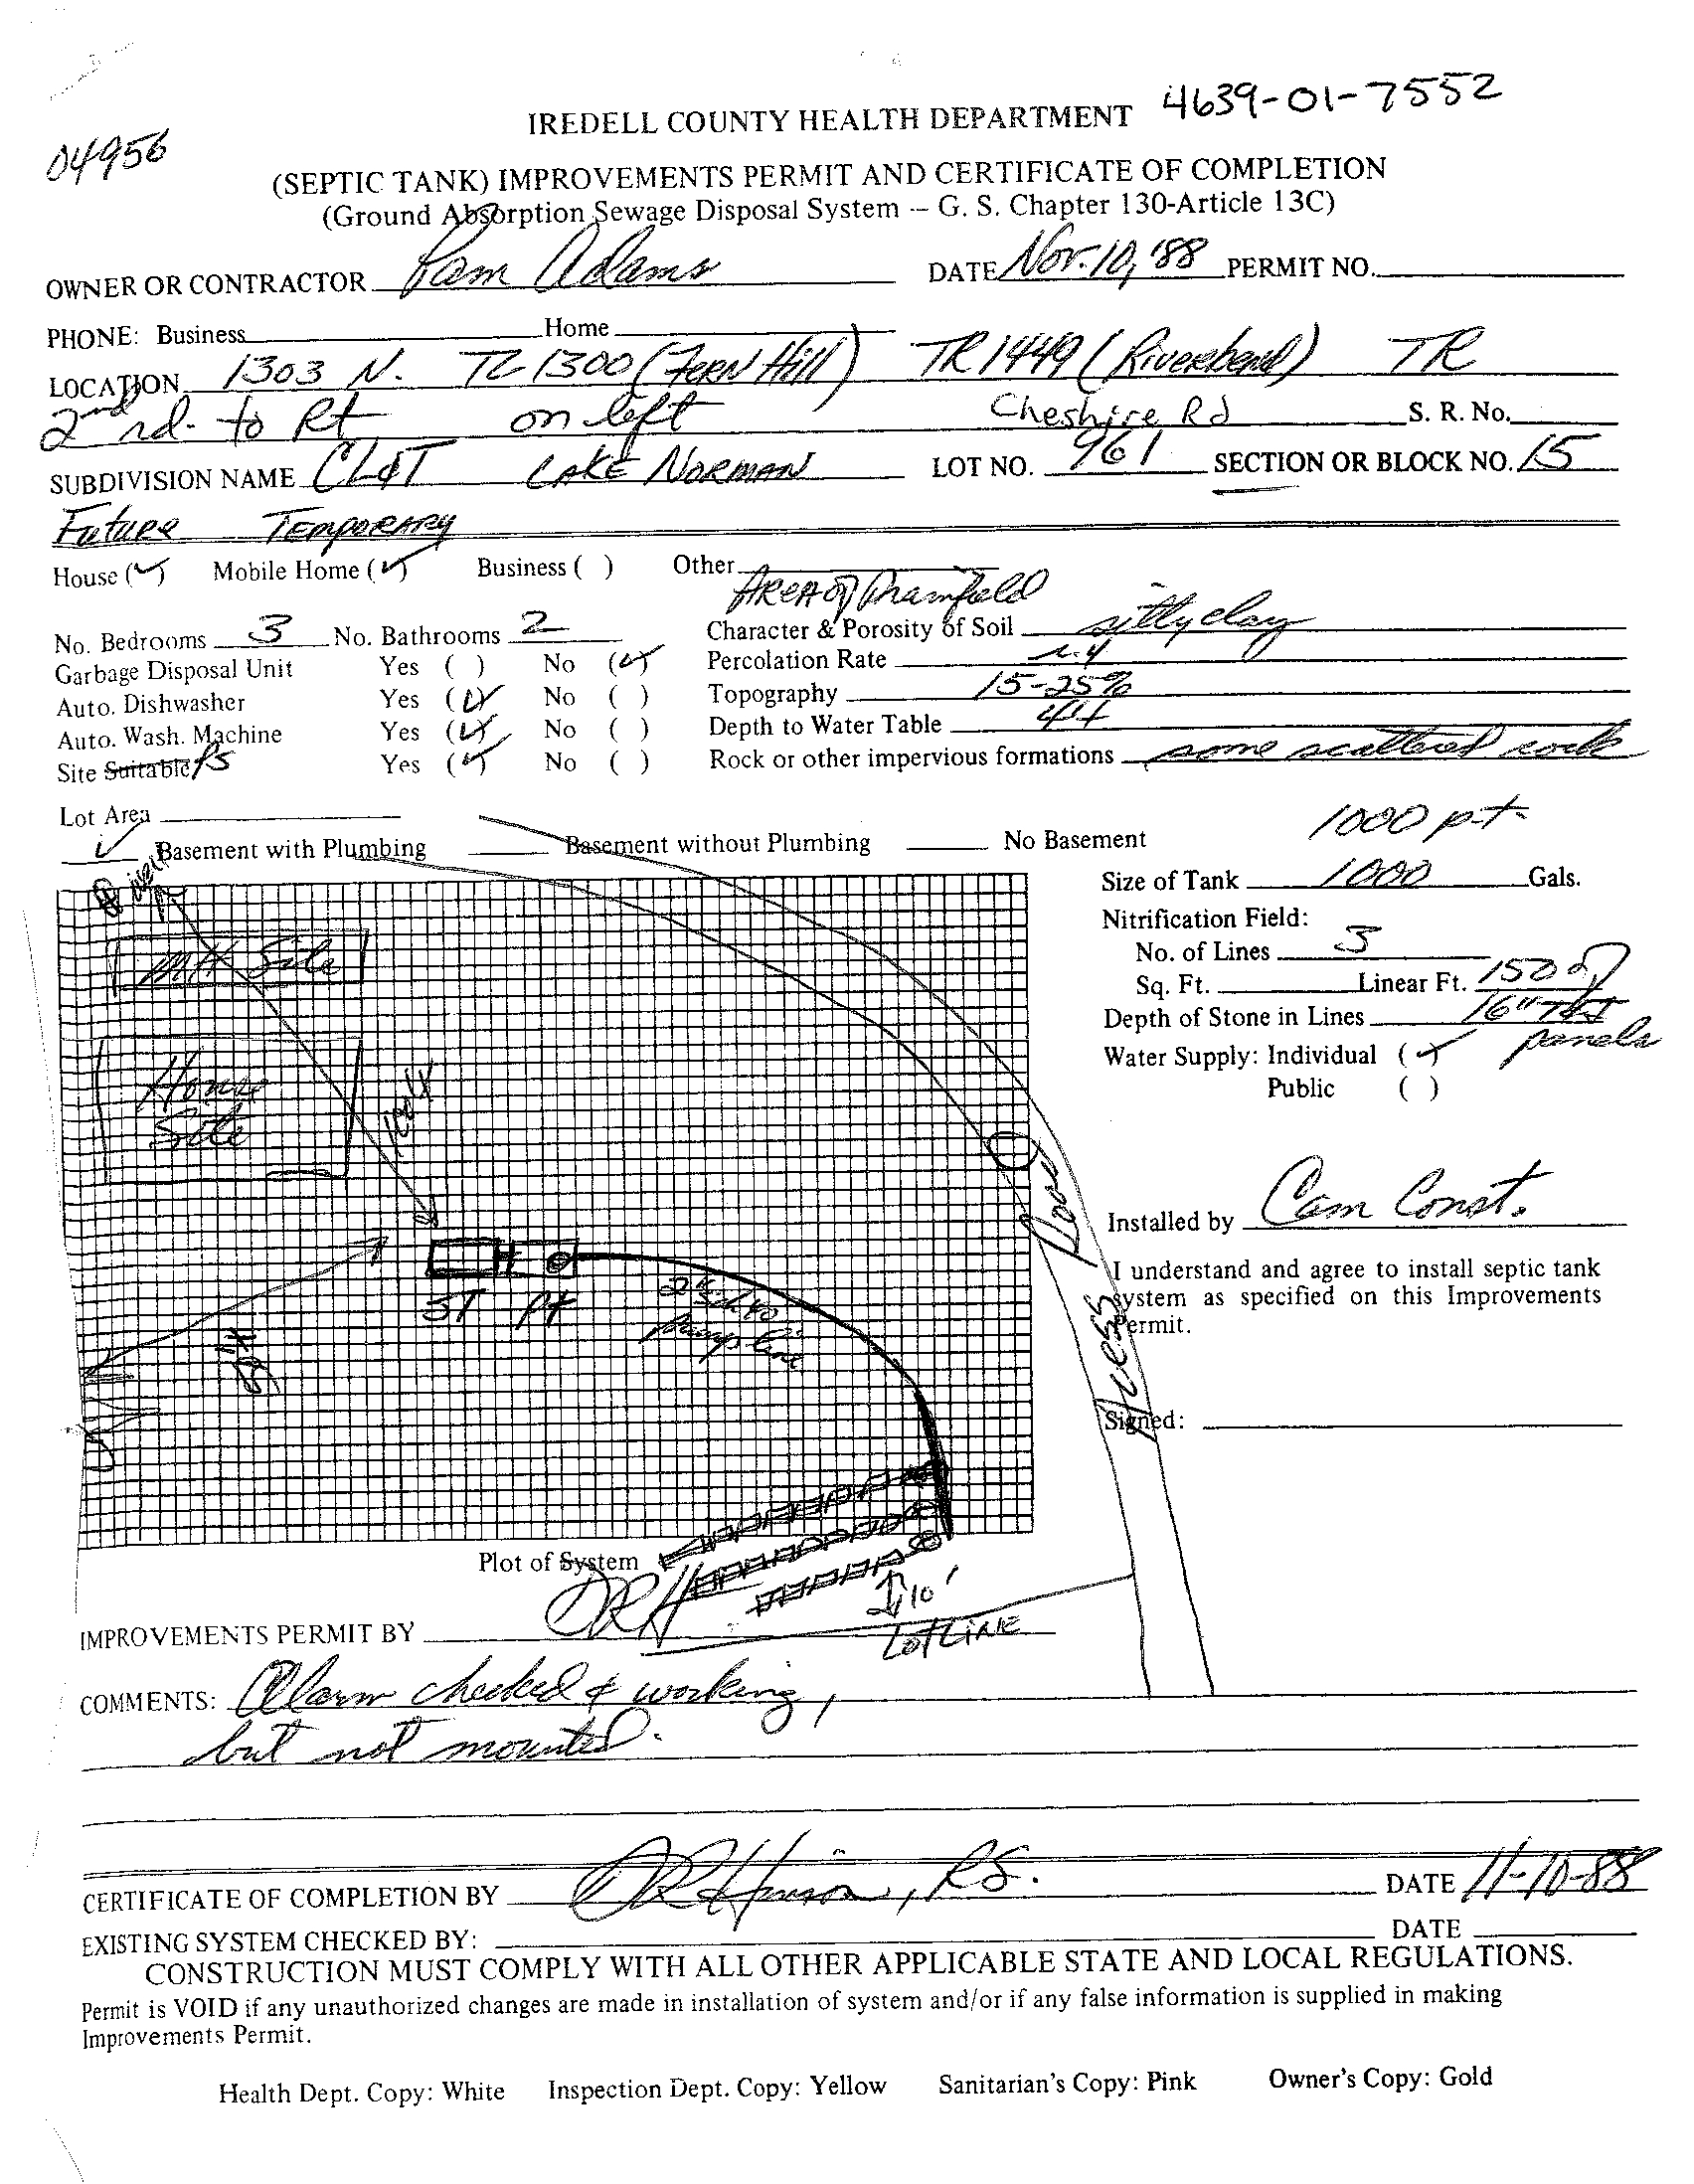 4639-01-7552
IREDELL COUNTY HEALTH DEPARTMENT
04956
(SEPTIC TANK) IMPROVEMENTS PERMIT AND CERTIFICATE OF COMPLETION
(Ground Absorption Sewage Disposal System -- G. S. Chapter 130-Article 13C)
OWNER OR CONTRACTOR Pam Adams DATE Nov. 10, '88 PERMIT NO.
PHONE: Business Home
LOCATION 1303 N. TL 1300 (FERN Hill) TR 1449 (Riverbend) TR
2nd rd. to Rt on left Cheshire Rd S. R. No.
SUBDIVISION NAME CL&T LAKE NORMAN LOT NO. 961 SECTION OR BLOCK NO. 15
Future TEMPORARY
House (✓) Mobile Home (✓) Business ( ) Other
AREA of Drainfield
No. Bedrooms 3 No. Bathrooms 2 Character & Porosity of Soil silty clay
Garbage Disposal Unit Yes ( ) No (✓) Percolation Rate .4
Auto. Dishwasher Yes (✓) No ( ) Topography 15-25%
Auto. Wash. Machine Yes (✓) No ( ) Depth to Water Table 4+
Site Suitable PS Yes (✓) No ( ) Rock or other impervious formations some scattered rock
Lot Area
1000 p.t.
✓ Basement with Plumbing Basement without Plumbing No Basement
Size of Tank 1000 Gals.
Nitrification Field:
No. of Lines 3
Sq. Ft. Linear Ft. 150 of
Depth of Stone in Lines 16"
panels
Water Supply: Individual (✓)
Public ( )
well
MH Site
House
Site
ST Pt
2" sch 40
Pump line
Access Road
Installed by Cam Const.
I understand and agree to install septic tank
system as specified on this Improvements
Permit.
Signed:
Plot of System
10'
LOT LINE
IMPROVEMENTS PERMIT BY ORH
COMMENTS: Alarm checked & working,
but not mounted.
CERTIFICATE OF COMPLETION BY OR Hinson, RS. DATE 11-10-88
EXISTING SYSTEM CHECKED BY: DATE
CONSTRUCTION MUST COMPLY WITH ALL OTHER APPLICABLE STATE AND LOCAL REGULATIONS.
Permit is VOID if any unauthorized changes are made in installation of system and/or if any false information is supplied in making
Improvements Permit.
Health Dept. Copy: White Inspection Dept. Copy: Yellow Sanitarian's Copy: Pink Owner's Copy: Gold